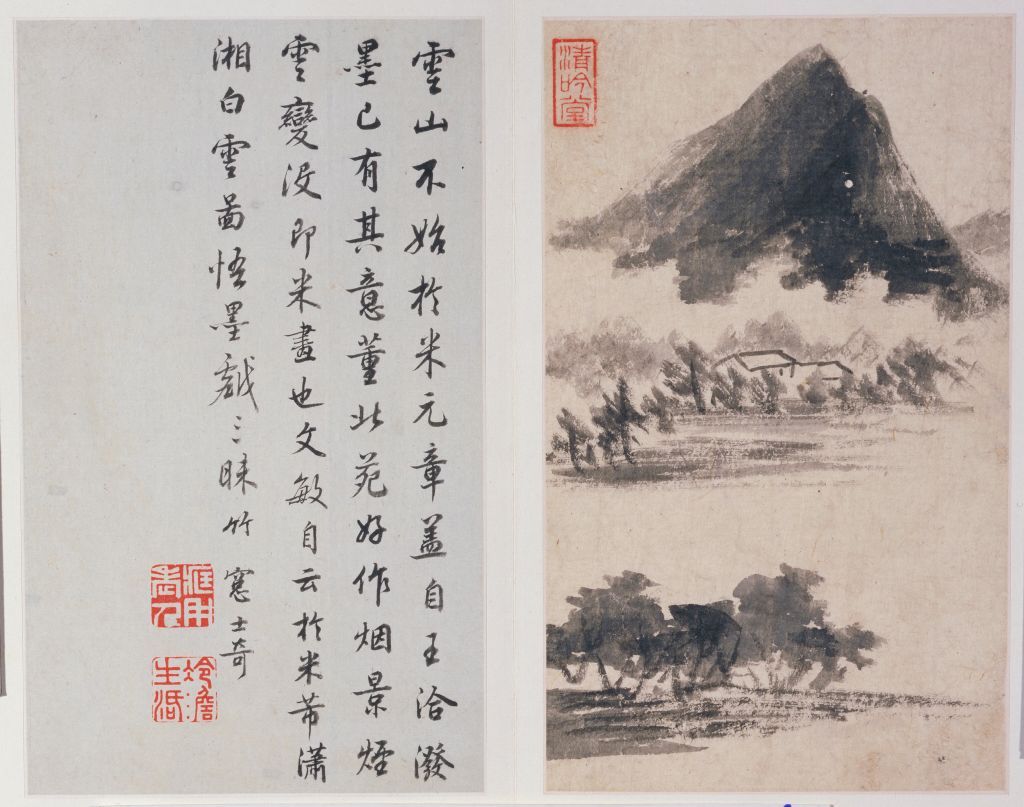 清吟堂
雲山不始於米元章盖自王洽潑
墨已有其意董北苑好作烟景煙
雲變没即米畫也文敏自云於米芾瀟
湘白雲啚悟墨戲三昧竹窻士奇
藏用老人
冷澹生活